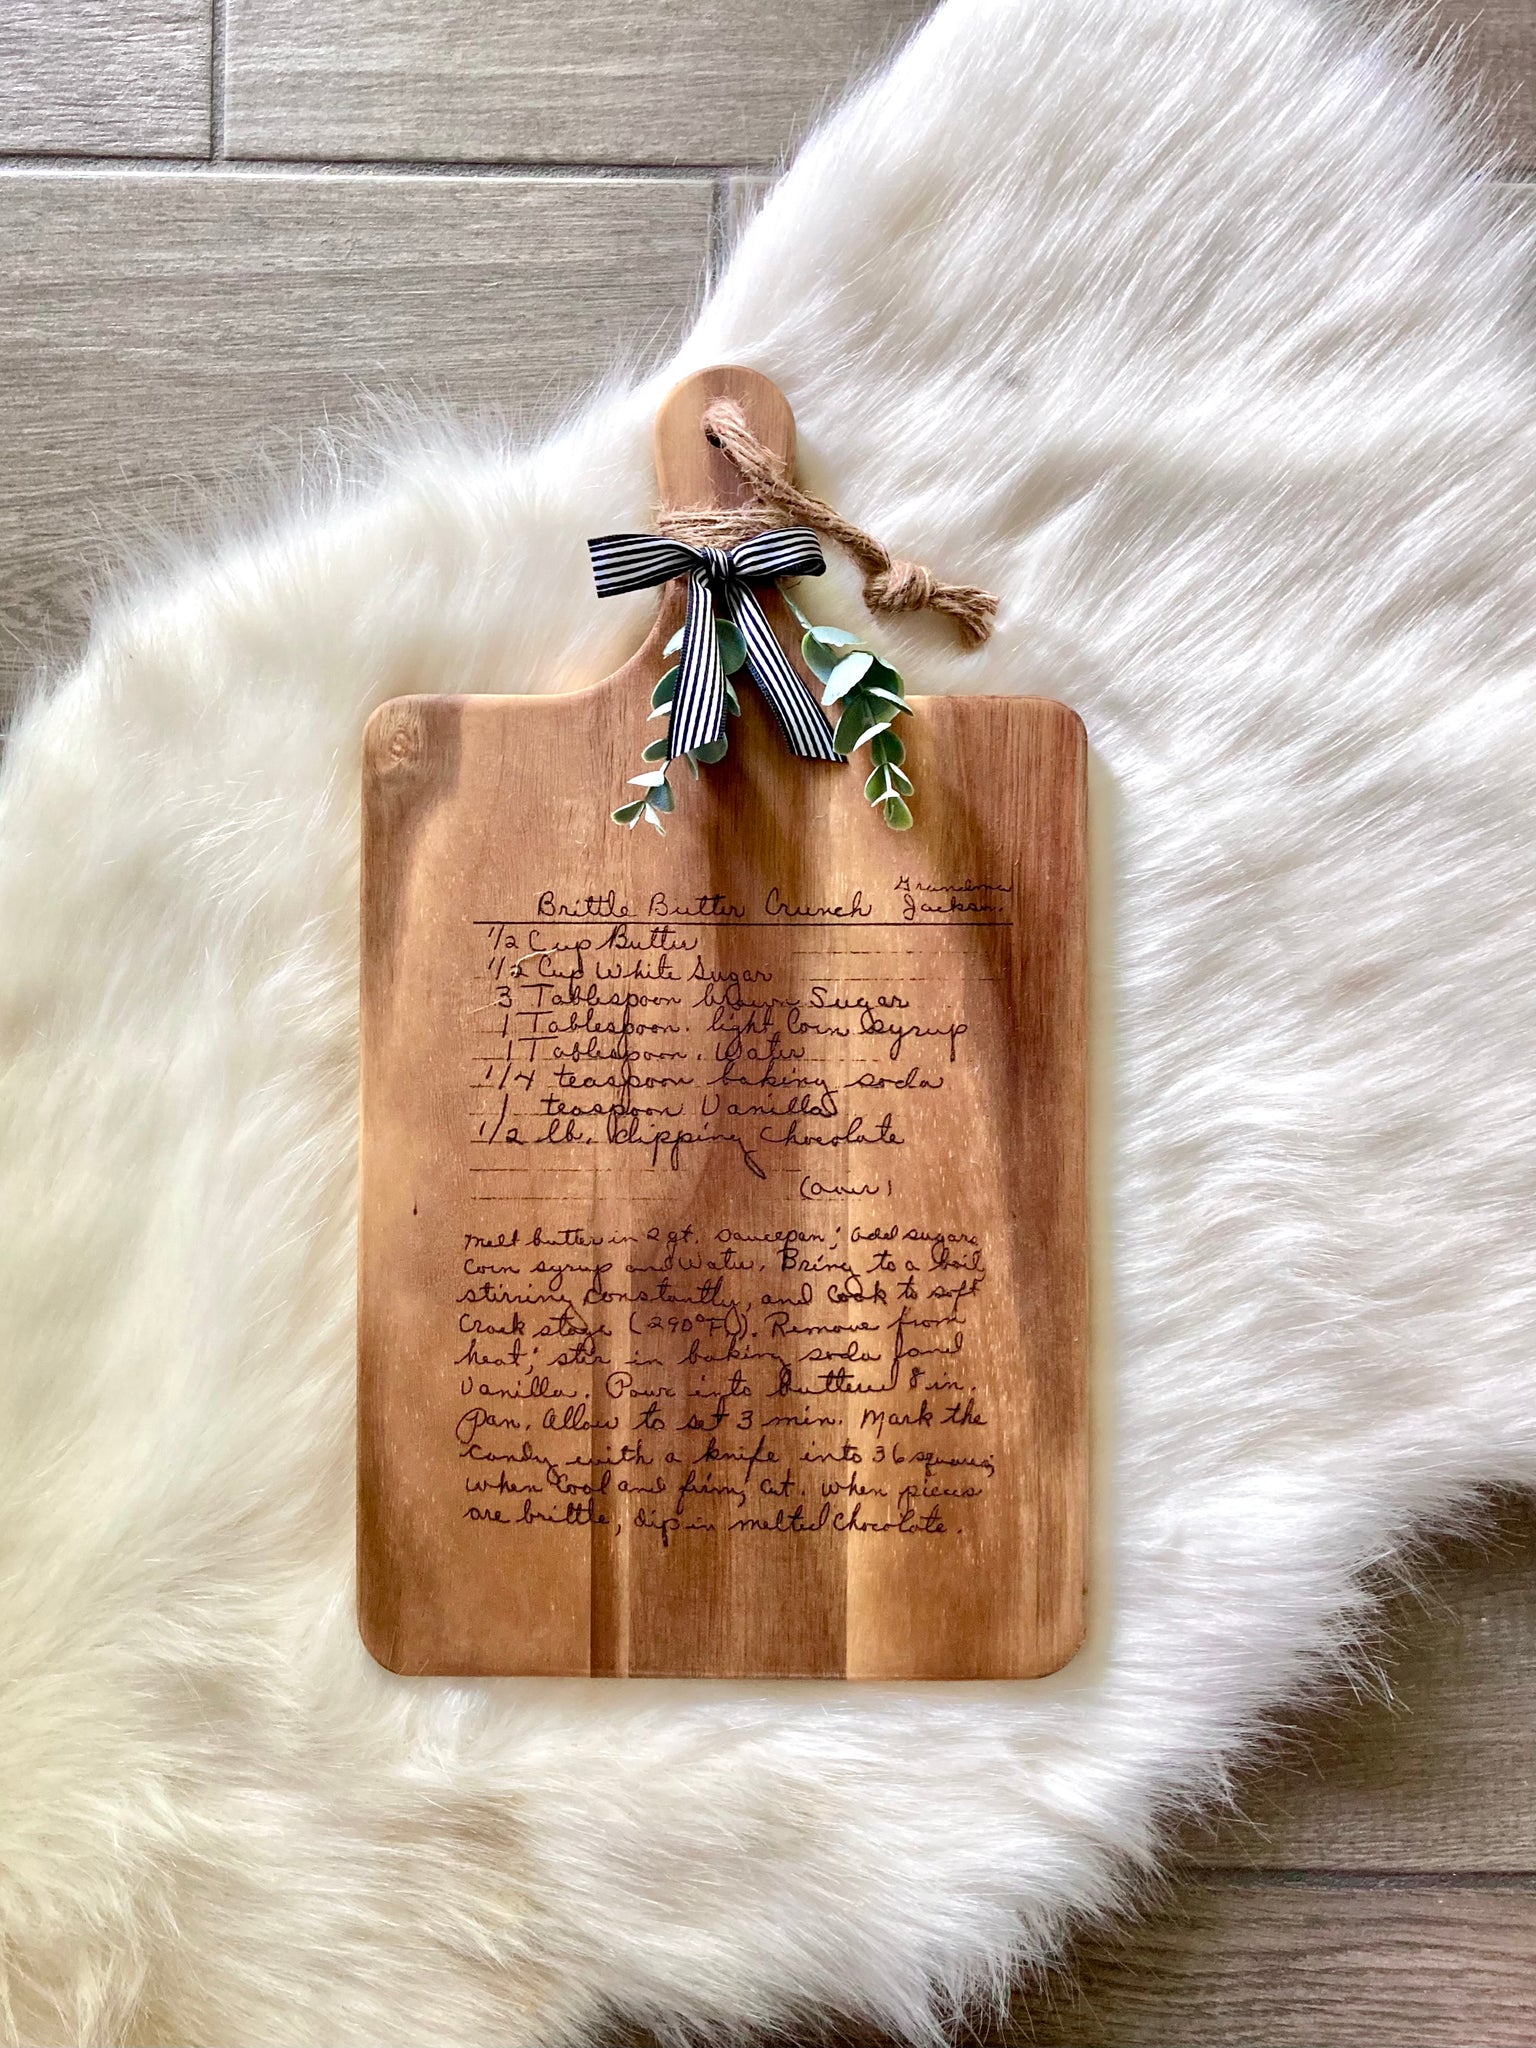 Brittle Butter Crunch Grandma Jackson.
1/2 Cup Butter
1/2 Cup White Sugar
3 Tablespoon brown Sugar
1 Tablespoon. light Corn syrup
1 Tablespoon. Water
1/4 teaspoon baking soda
1 teaspoon Vanilla
1/2 lb. dipping chocolate
(over)
Melt butter in 2 qt. saucepan; add sugars
Corn syrup and Water. Bring to a boil
stirring constantly, and cook to soft
Crack stage (290°F). Remove from
heat; stir in baking soda and
Vanilla. Pour into buttered 8 in.
Pan. Allow to set 3 min. Mark the
candy with a knife into 36 squares;
when Cool and firm, cut. When pieces
are brittle, dip in melted Chocolate.